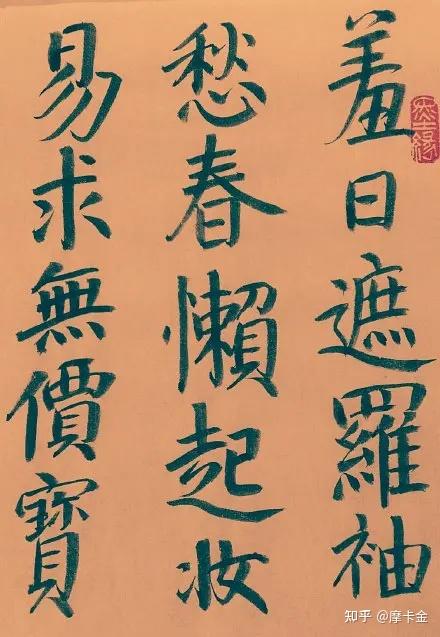 羞日遮羅袖
愁春懶起妝
易求無價寶
知乎 @摩卡金